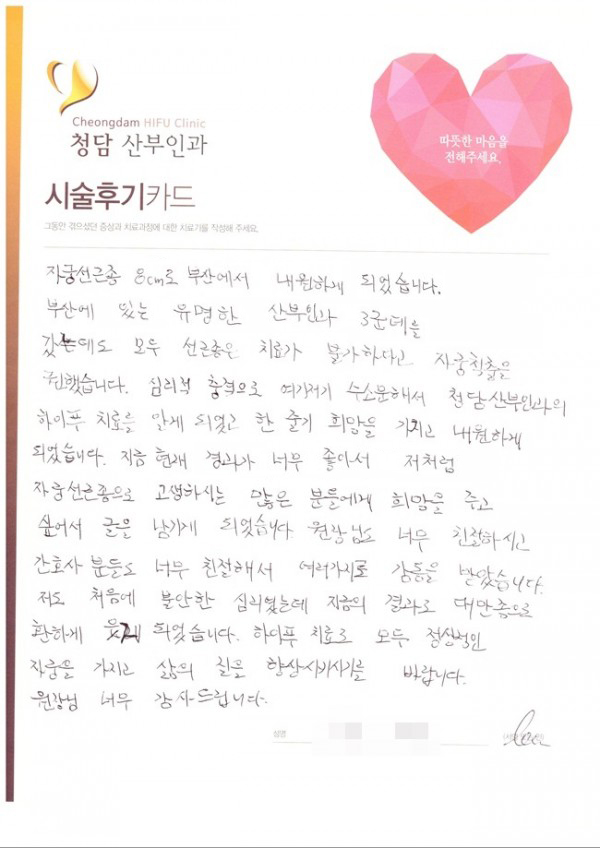 Cheongdam HIFU Clinic
청담 산부인과
따뜻한 마음을
전해주세요.
시술후기카드
그동안 겪으셨던 증상과 치료과정에 대한 치료기를 작성해 주세요.
자궁선근종 8cm로 부산에서 내원하게 되었습니다.
부산에 있는 유명한 산부인과 3군데를
갔는데도 모두 선근종은 치료가 불가하다고 자궁적출을
권했습니다. 심리적 충격으로 여기저기 수소문해서 청담산부인과의
하이푸 치료를 알게 되었고 한 줄기 희망을 가지고 내원하게
되었습니다. 지금 현재 경과가 너무 좋아서 저처럼
자궁선근종으로 고생하시는 많은 분들에게 희망을 주고
싶어서 글을 남기게 되었습니다 원장님도 너무 친절하시고
간호사 분들도 너무 친절해서 여러가지로 감동을 받았습니다.
저도 처음에 불안한 심리였는데 지금의 결과로 대만족으로
환하게 웃게 되었습니다. 하이푸 치료로 모두 정상적인
자궁을 가지고 삶의 질을 향상시키시기를 바랍니다.
원장님 너무 감사드립니다.
성명